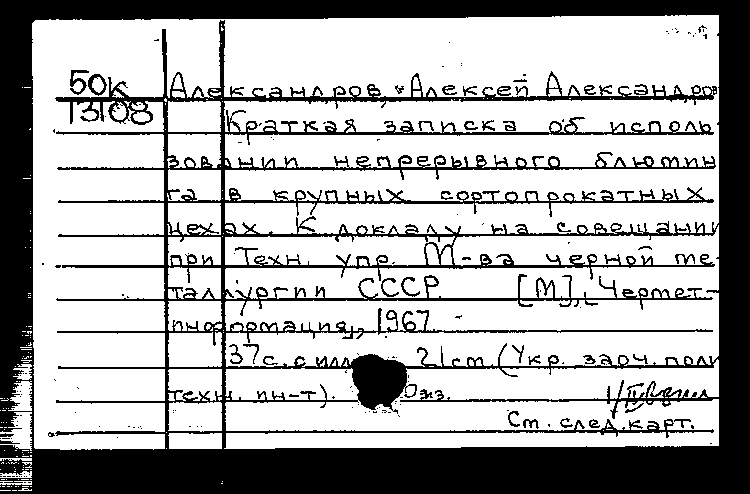 50к
Т3108
Александров, Алексей Александров
Краткая записка об исполь-
зовании непрерывного блюмин
га в крупных сортопрокатных
цехах. К докладу на совещании
при Техн. упр. М-ва черной ме-
таллургии СССР. [М], [Чермет-
информация], 1967
37с. с илл 21 см. (Укр. заоч. поли
техн. ин-т). 0 экз.
Cm. след. карт.